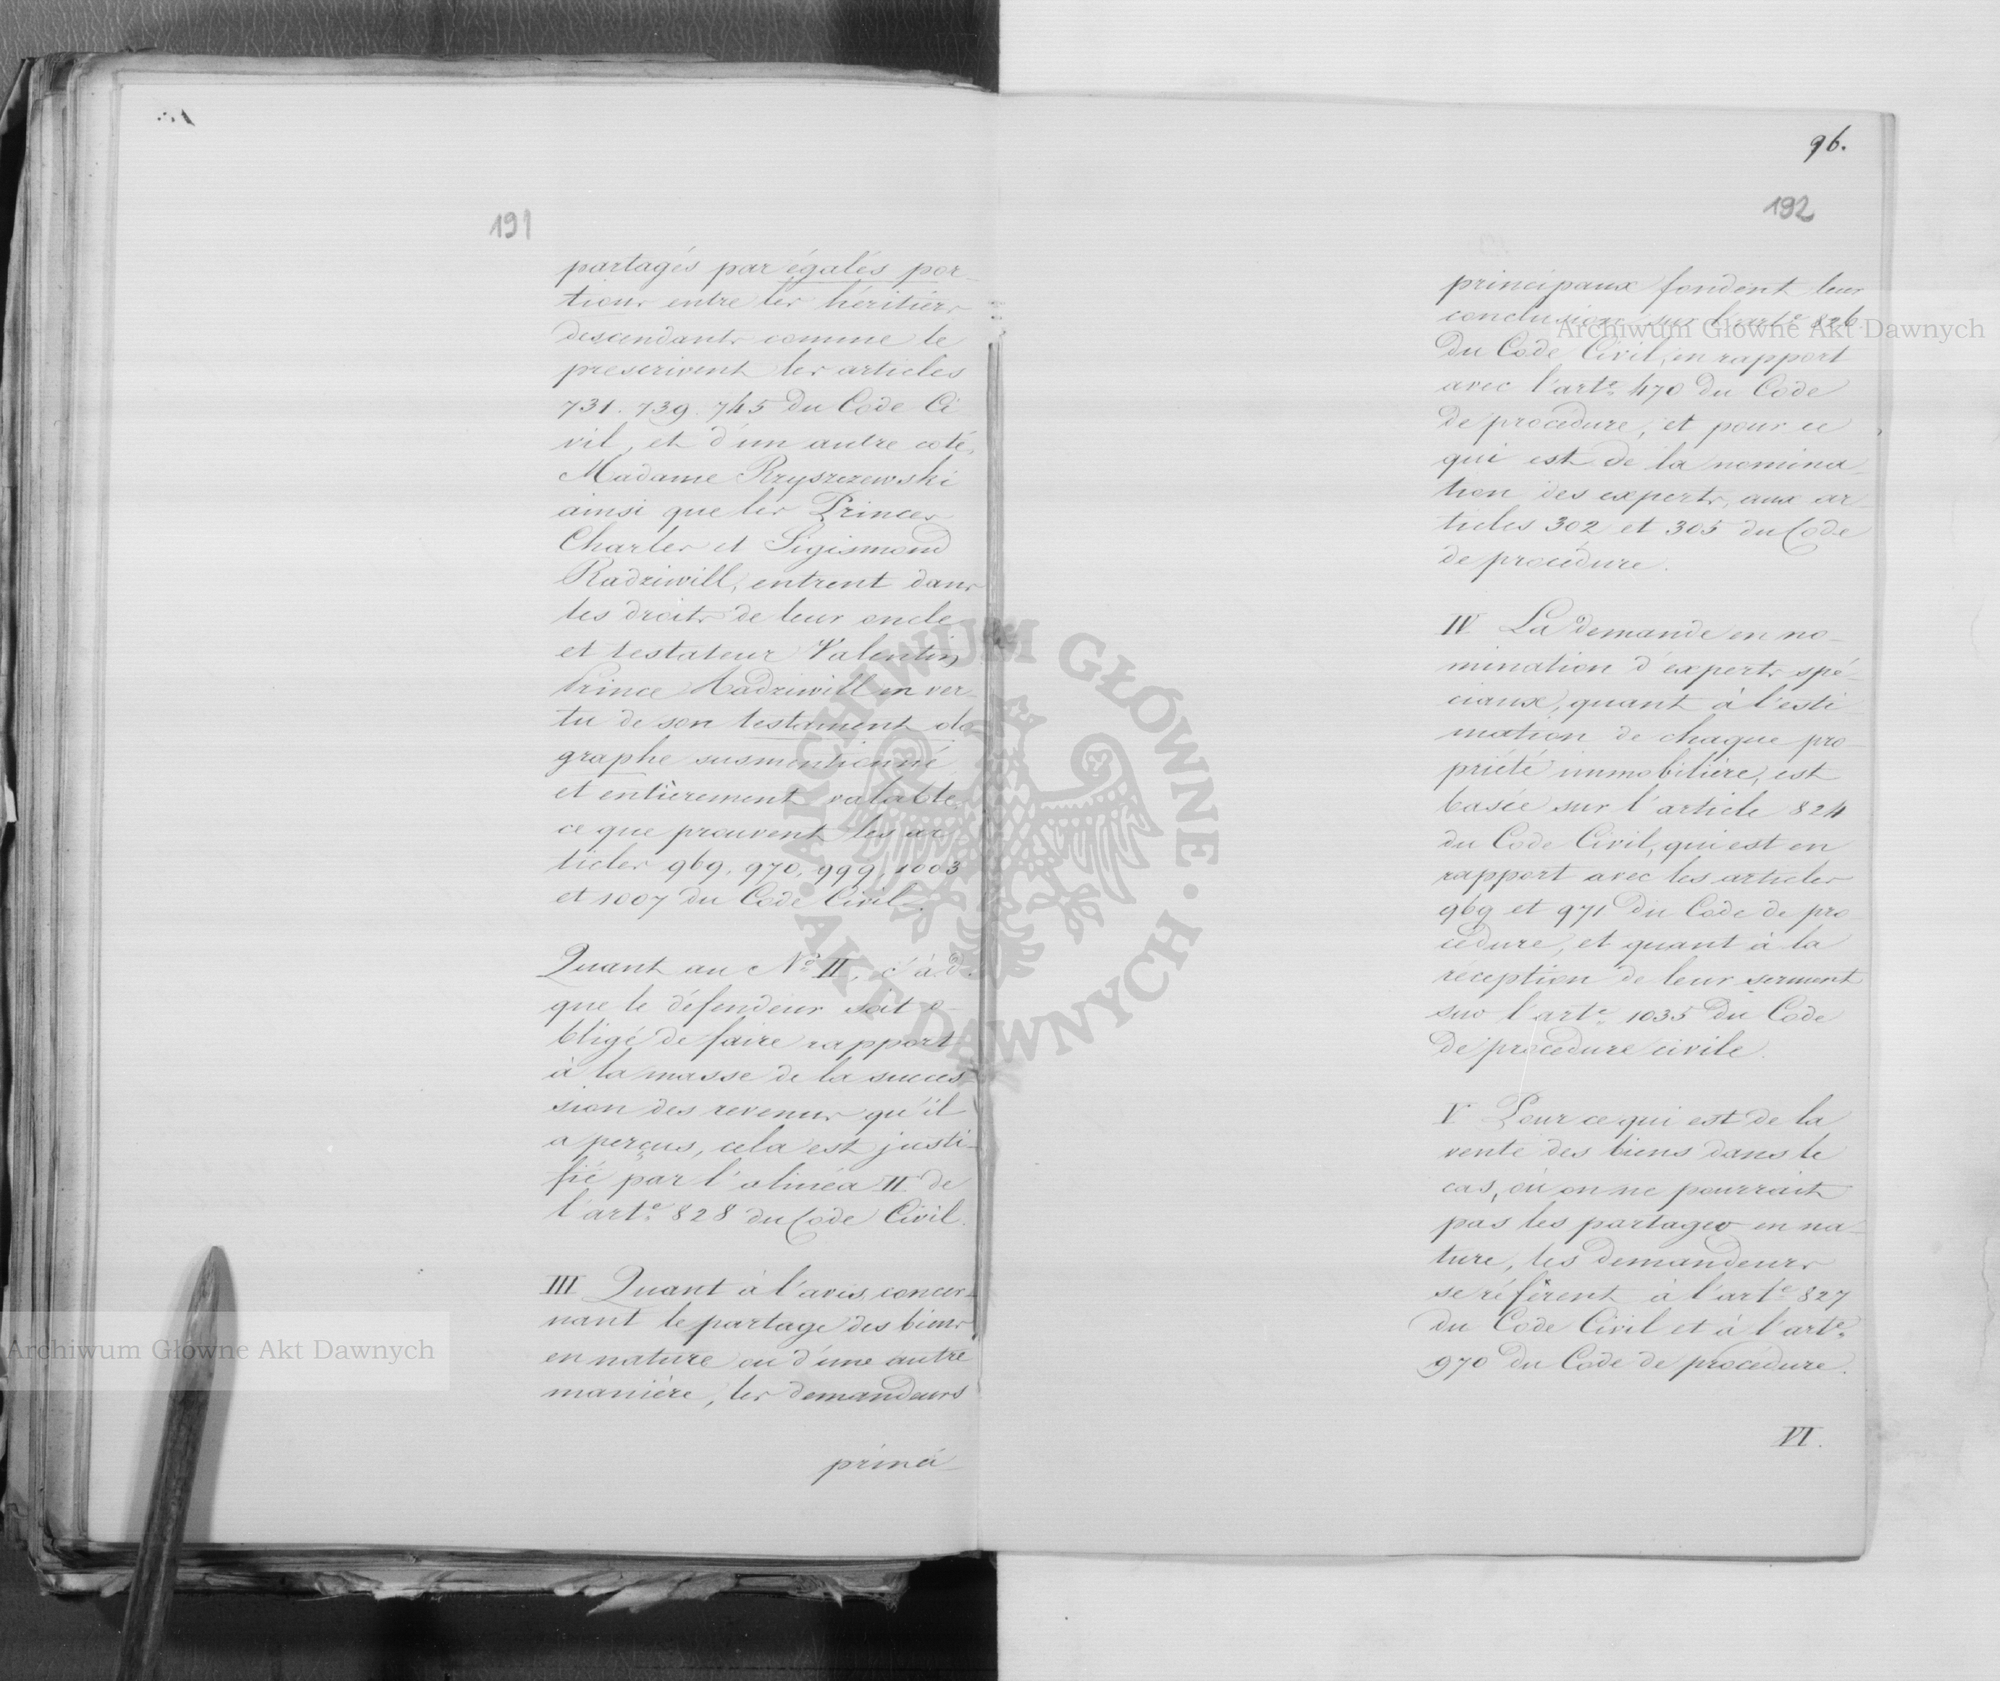 191
partagés par égales por-
tions entre les héritiers
descendants comme le
prescrivent les articles
731. 739. 745 du Code Ci
vil, et d'un autre coté,
Madame Rzyszczewski
ainsi que les Princes
Charles et Sigismond
Radziwill, entrent dans
les droits de leur oncle
et testateur Valentin
Prince Radziwill en ver-
tu de son testament olo
graphe susmentionné
et entièrement valable
ce que prouvent les ar
ticles 969, 970, 999, 1003
et 1007 du Code Civil.
Quant au No II, c'àd.
que le défendeur soit o-
bligé de faire rapport
à la masse de la succes
sion des revenus qu'il
a perçus, cela est justi-
fié par l'alinéa II de
l'arte 828 du Code Civil.
III Quant à l'avis concer-
nant le partage des biens
en nature ou d'une autre
manière, les demandeurs
princi-
96.
192
principaux fondent leur
conclusion sur l'arte 826
du Code Civil, en rapport
avec l'arte 470 du Code
de procédure, et pour ce
qui est de la nomina-
tion des experts, aux ar-
ticles 302 et 305 du Code
de procédure.
IV La demande en no-
mination d'experts spé-
ciaux, quant à l'esti
mation de chaque pro-
priété immobilière, est
basée sur l'article 824
du Code Civil, qui est en
rapport avec les articles
969 et 971 du Code de pro
cédure, et quant à la
réception de leur serment
sur l'arte 1035 du Code
de procédure civile.
V Pour ce qui est de la
vente des biens dans le
cas, où on ne pourrait
pas les partager en na-
ture, les demandeurs
se réfèrent à l'arte 827
du Code Civil et à l'arte
970 du Code de procédure.
VI.
Archiwum Główne Akt Dawnych
Archiwum Główne Akt Dawnych
ARCHIWUM GŁÓWNE · AKT DAWNYCH ·